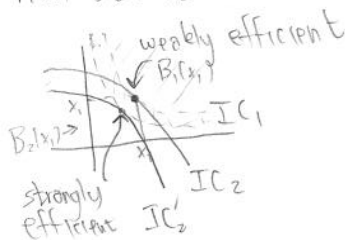 weakly efficient
B₁(x₁)
x₁
IC₁
B₂(x₁) →
x₁
IC₂
strongly
efficient
IC₂'